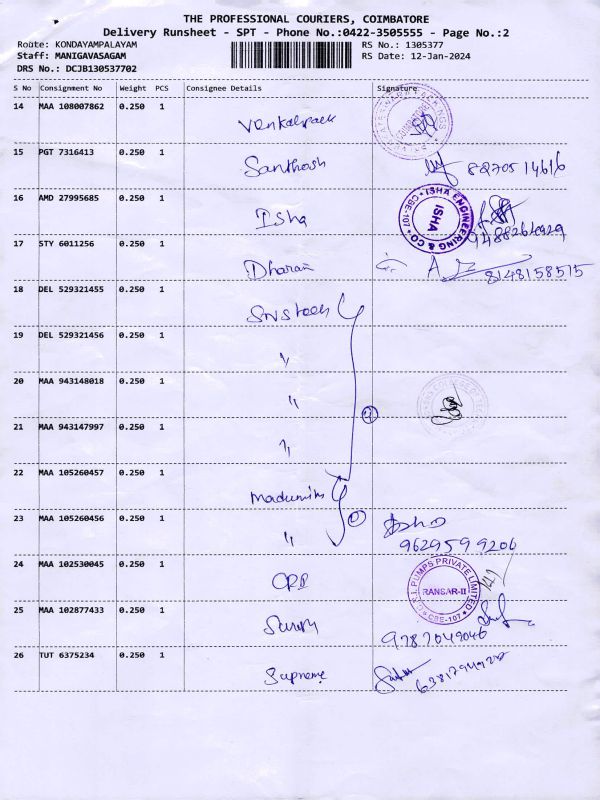 THE PROFESSIONAL COURIERS, COIMBATORE
Delivery Runsheet - SPT - Phone No.:0422-3505555 - Page No.:2
Route: KONDAYAMPALAYAM RS No.: 1305377
Staff: MANIGAVASAGAM RS Date: 12-Jan-2024
DRS No.: DCJB130537702
S No Consignment No Weight PCS Consignee Details Signature
14 MAA 108007862 0.250 1
15 PGT 7316413 0.250 1 Santhosh 8270514616
16 AMD 27995685 0.250 1 Isha
ISHA ENGINEERING & CO CBE-107 ISHA
17 STY 6011256 0.250 1 Dharan 8148158515
18 DEL 529321455 0.250 1
19 DEL 529321456 0.250 1 "
20 MAA 943148018 0.250 1 "
21 MAA 943147997 0.250 1 "
4
22 MAA 105260457 0.250 1
23 MAA 105260456 0.250 1 "
9629599206
24 MAA 102530045 0.250 1 CRI
PUMPS PRIVATE LIMITED RANSAR-II CBE-107
25 MAA 102877433 0.250 1 9787049046
26 TUT 6375234 0.250 1 Supreme